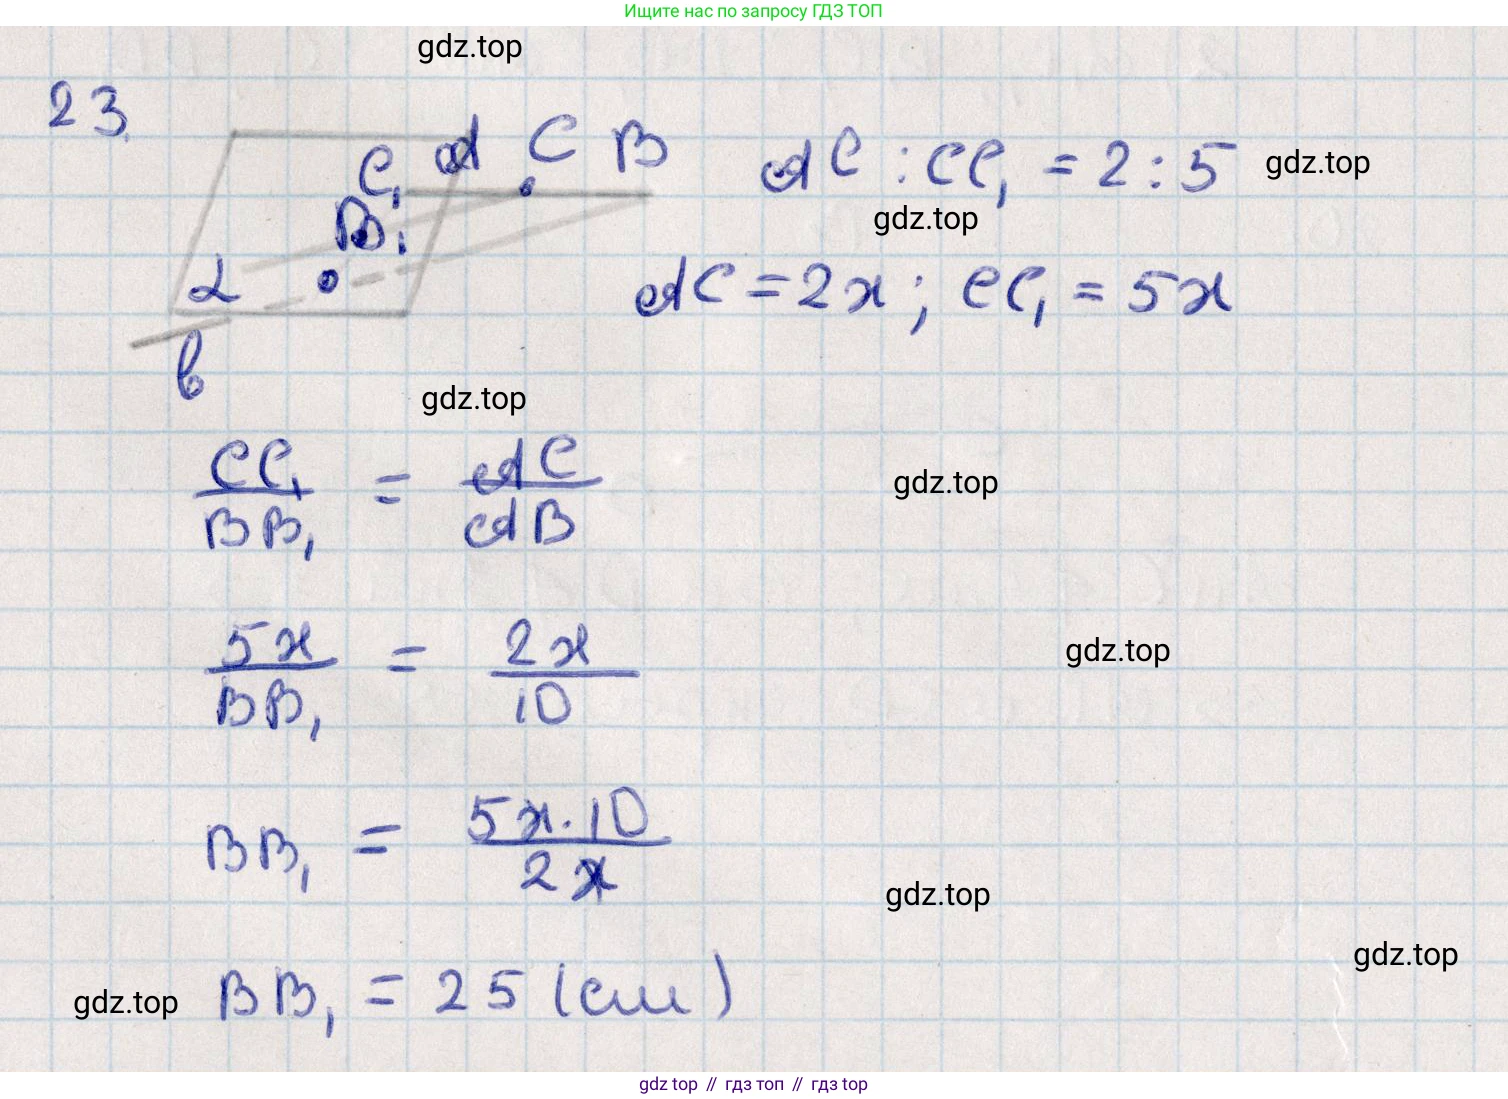 Ищите нас по запросу ГДЗ ТОП
gdz.top
23.
C₁ A C B
AC : CC₁ = 2 : 5
gdz.top
gdz.top
B₁
α
AC = 2x ; CC₁ = 5x
в
gdz.top
CC₁/BB₁ = AC/AB
gdz.top
5x/BB₁ = 2x/10
gdz.top
BB₁ = 5x·10/2x
gdz.top
gdz.top
gdz.top
BB₁ = 25 (см)
gdz top // гдз топ // гдз top